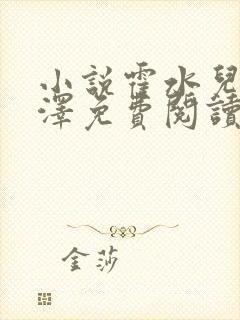 小說霍水兒
澤免費閱讀
金莎